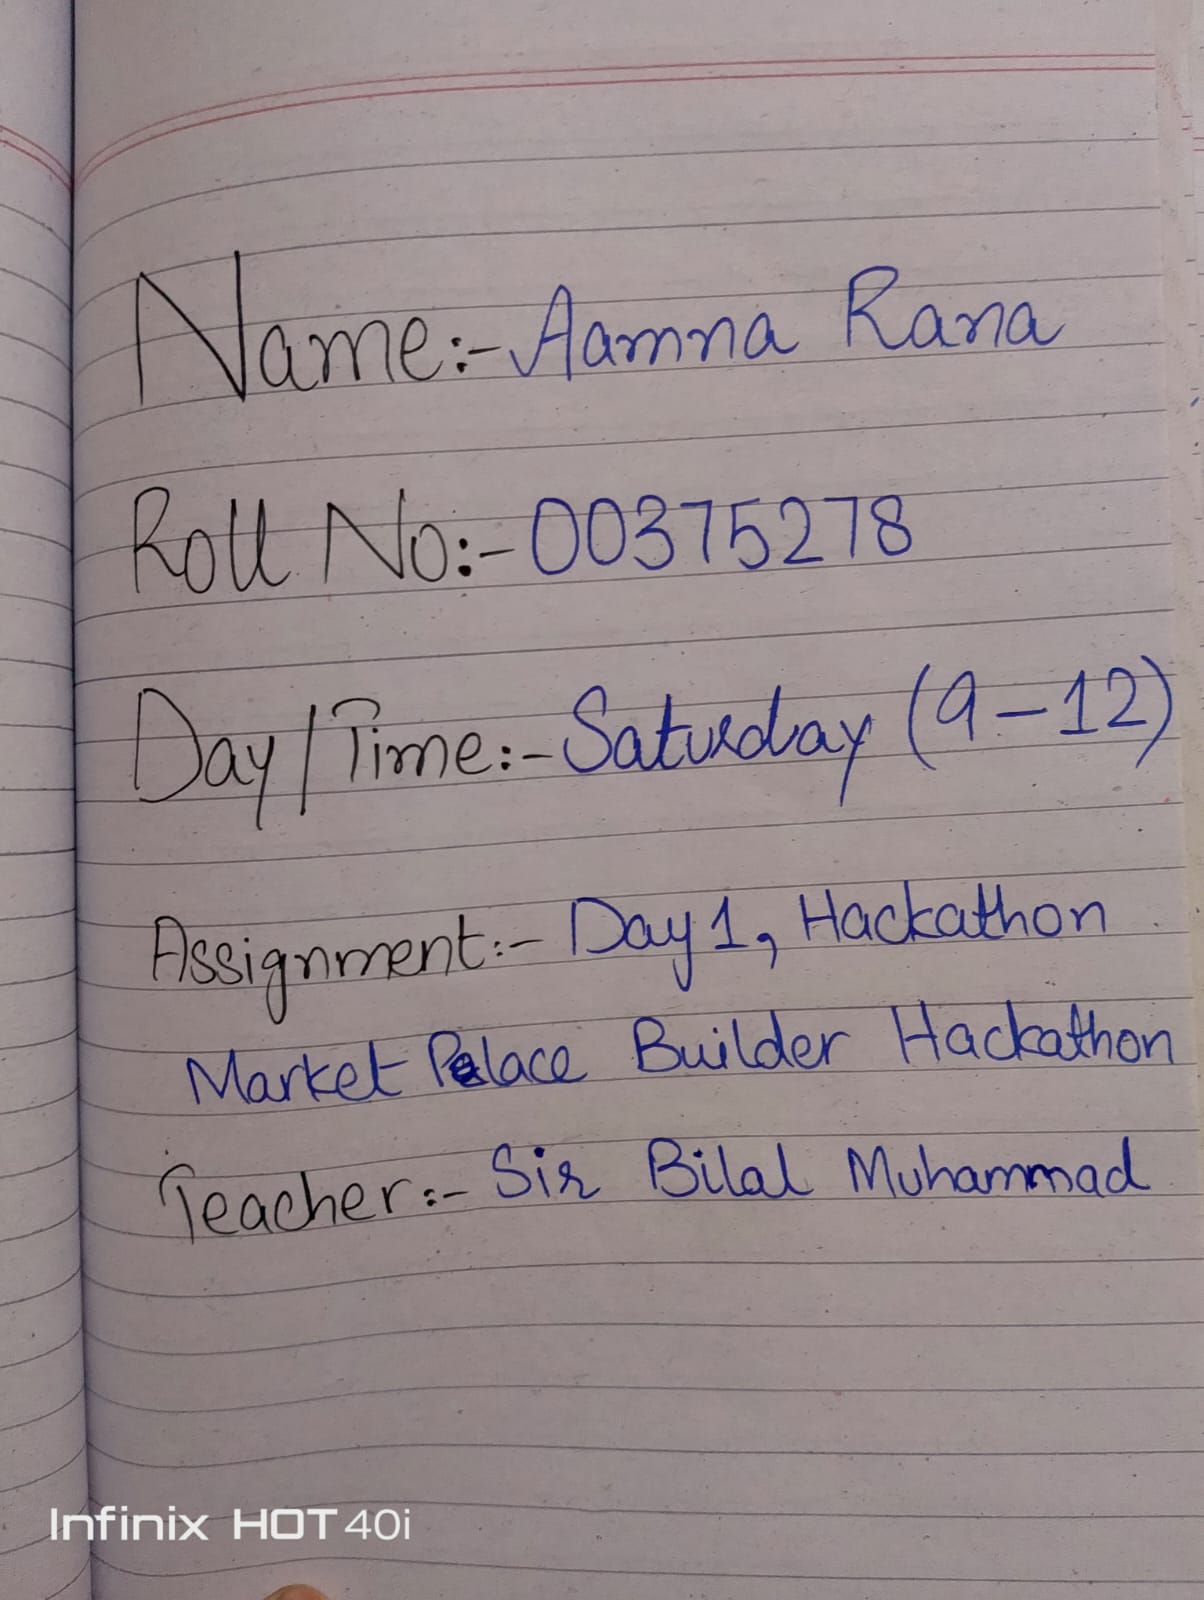 Name:- Aamna Rana
Roll No:- 00375278
Day/Time:- Saturday (9-12)
Assignment:- Day 1, Hackathon
Market Palace Builder Hackathon
Teacher:- Sir Bilal Muhammad
Infinix HOT 40i